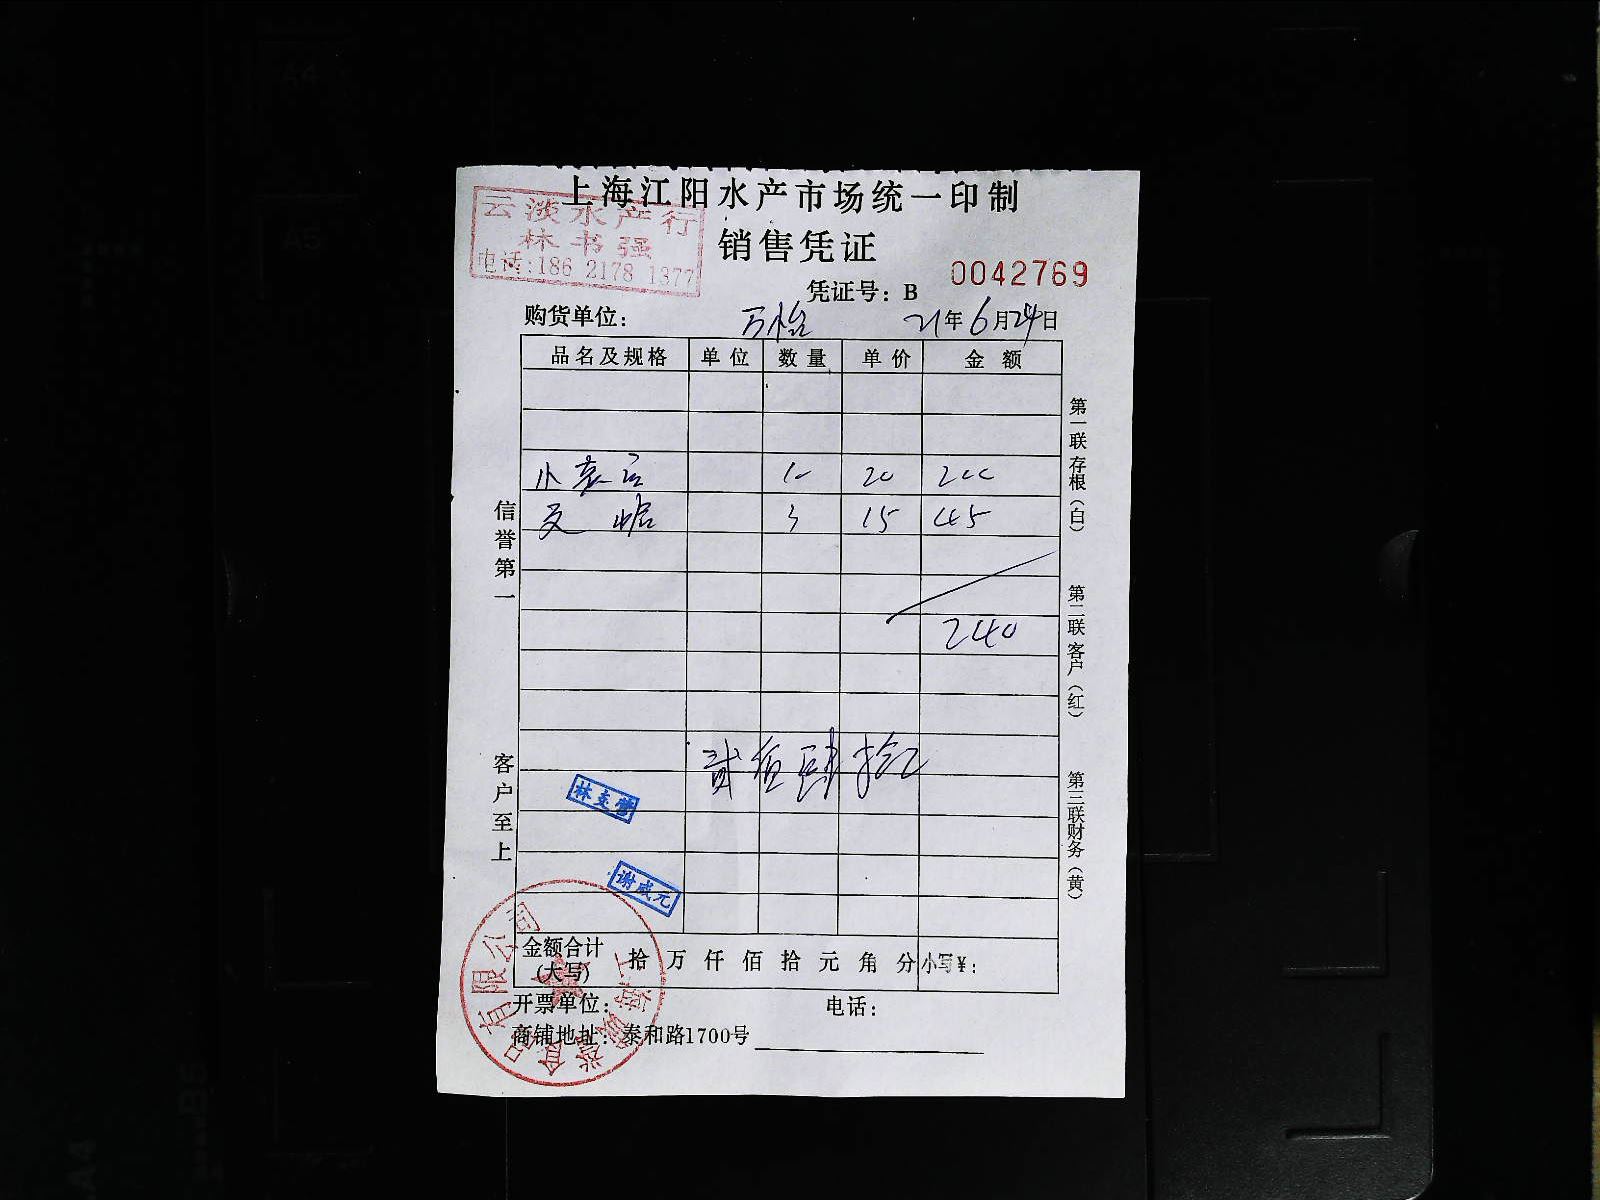 上海江阳水产市场统一印制
云淡水产行
林书强
电话:186 2178 1377
销售凭证
0042769
凭证号：B
购货单位： 万怡 21年6月24日
品名及规格 单位 数量 单价 金额
10 20 200
3 15 45
240
贰佰肆拾元
林支营
谢成元
信誉第一
客户至上
第一联存根（白）
第二联客户（红）
第三联财务（黄）
金额合计(大写) 拾万仟佰拾元角分 小写¥：
开票单位： 电话：
商铺地址：泰和路1700号
食品有限公司